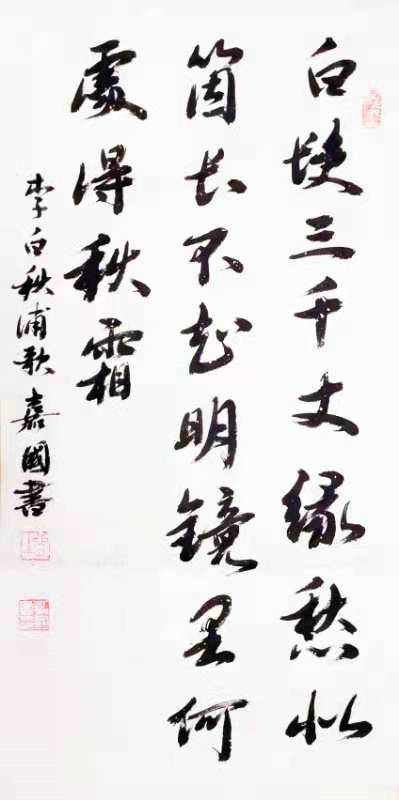 白髮三千丈緣愁似
箇長不知明鏡里何
處得秋霜
李白秋浦歌嘉國書